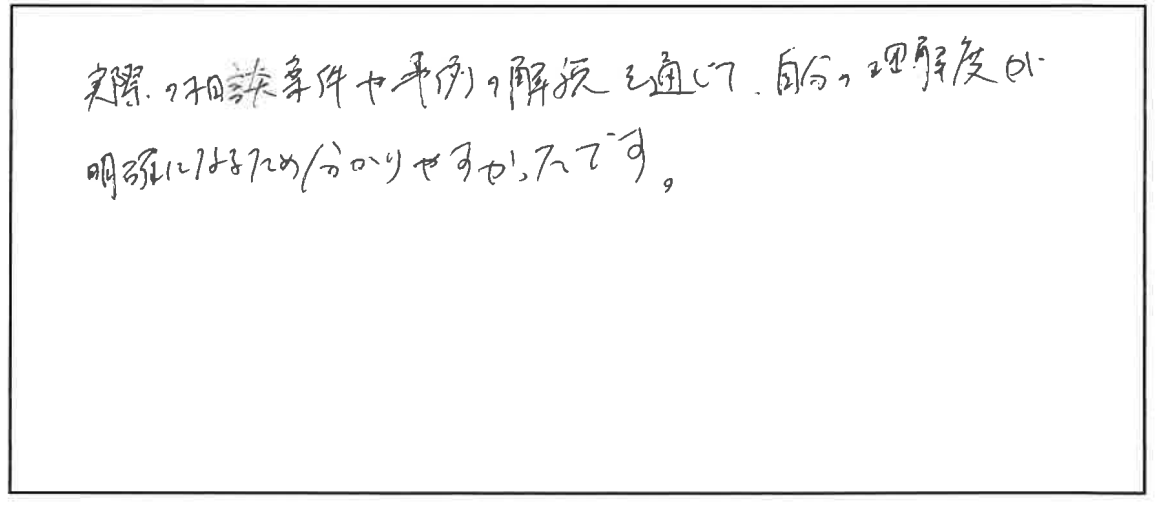 実際の相談案件や事例の解説を通じて、自分の理解度が
明確になるため分かりやすかったです。